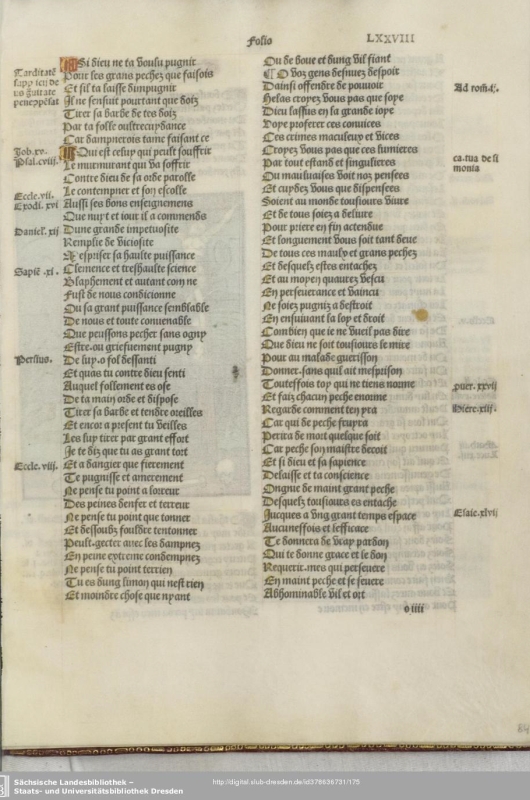 folio LXXVIII
Si dieu ne ta voulu pugnir
Pour les grans pechez que faisois
Et sil ta laisse dimpugnit
Il ne sensuit pourtant que doiz
Tirer sa barbe de tes doiz
Par ta folle oultrecuydance
Car dampnerois tame faisant ce
Qui est celuy qui peult souffrir
Le murmurant qui va soffrir
Contre dieu de sa orde parolle
Le contempner et son escolle
Aussi ses bons enseignemens
Que nuyt et iour il a commends
Dune grande impetuosite
Remplie de viciosite
Mespriser sa haulte puissance
Clemence et treshaulte science
Blaphement et autant comme
Fust de nous condicionne
Ou sa grant puissance semblable
De nous et toute conuenable
Que puissons pecher sans ogny
Estre-ou griefuement pugny
De luy.o fol dessanti
Et quas tu contre dieu senti
Auquel follement es ose
De ta main orde et dispose
Tirer sa barbe et tendre oreilles
Et encor a present tu veilles
Les luy tirer par grant effort
Je te diz que tu as grant tort
Et a dangier que fierement
Te pugnisse et amerement
Ne pense tu point a loreur
Des peines denfer et terreur
Ne pense tu point que tonner
Et dessoubz fouldre tentonner
Peult-getter auec les dampnez
En peine extreme condempnez
Ne pense tu point terrien
Tu es dung limon qui nest rien
Et moindre chose que nyant
Tarditatē
Job.xv.
Psal.cviij.
Eccle.vii.
Exodi.xvi
Daniel'.xij
Sapiē .xi.
Persius.
Eccle.viij.
Ou de boue et dung vil fiant
¶ O voz gens desuiez despoit
Dainsi offendre de pouoir
Helas croyez vous pas que soye
Dieu lassus en sa grande ioye
Voye proferer ces conuices
Ces crimes maculeux et vices
Croyez vous pas que ces lumieres
Par tout estand et singulieres
Ou mauluaises voit noz pensees
Et cuydez vous que dispensees
Soient au monde tousiours viure
Et de tous soiez a deliure
Pour priere en fin actendue
Et longuement vous soit tant deue
De tous ces maulx et grans pechez
Et desquelz estes entachez
Et au moyen quaurez vescu
En perseuerance et vaincu
Ne soiez pugniz a destroit
En ensuiuant la loy et droit
Combien que ie ne vueil pas dire
Que dieu ne soit tousiours le mire
Pour au malade guerison
Donner.sans quil ait mesprison
Touteffois toy qui ne tiens nonne
Et faiz chacun peche enorme
Regarde comment ten yra
Car qui de peche fruyra
Perira de mort quelque soit
Car peche son maistre decoit
Et si dieu et sa sapience
Delaisse et ta conscience
Ongnie de maint grant peche
Desquelz tousiours es entache
Jucques a vng grant temps espace
Aucuneffois et lefficace
Te donnera de vray pardon
Qui te donne grace et le don
Requerir-mes qui perseuere
En maint peche et se seuere
Abhominable vil et ort
ca.rua de si
monia
puer.xxvij
Hiere.xiij.
Esaie.xlvij
o iiii
Sächsische Landesbibliothek –
Staats- und Universitätsbibliothek Dresden
http://digital.slub-dresden.de/id376636731/175